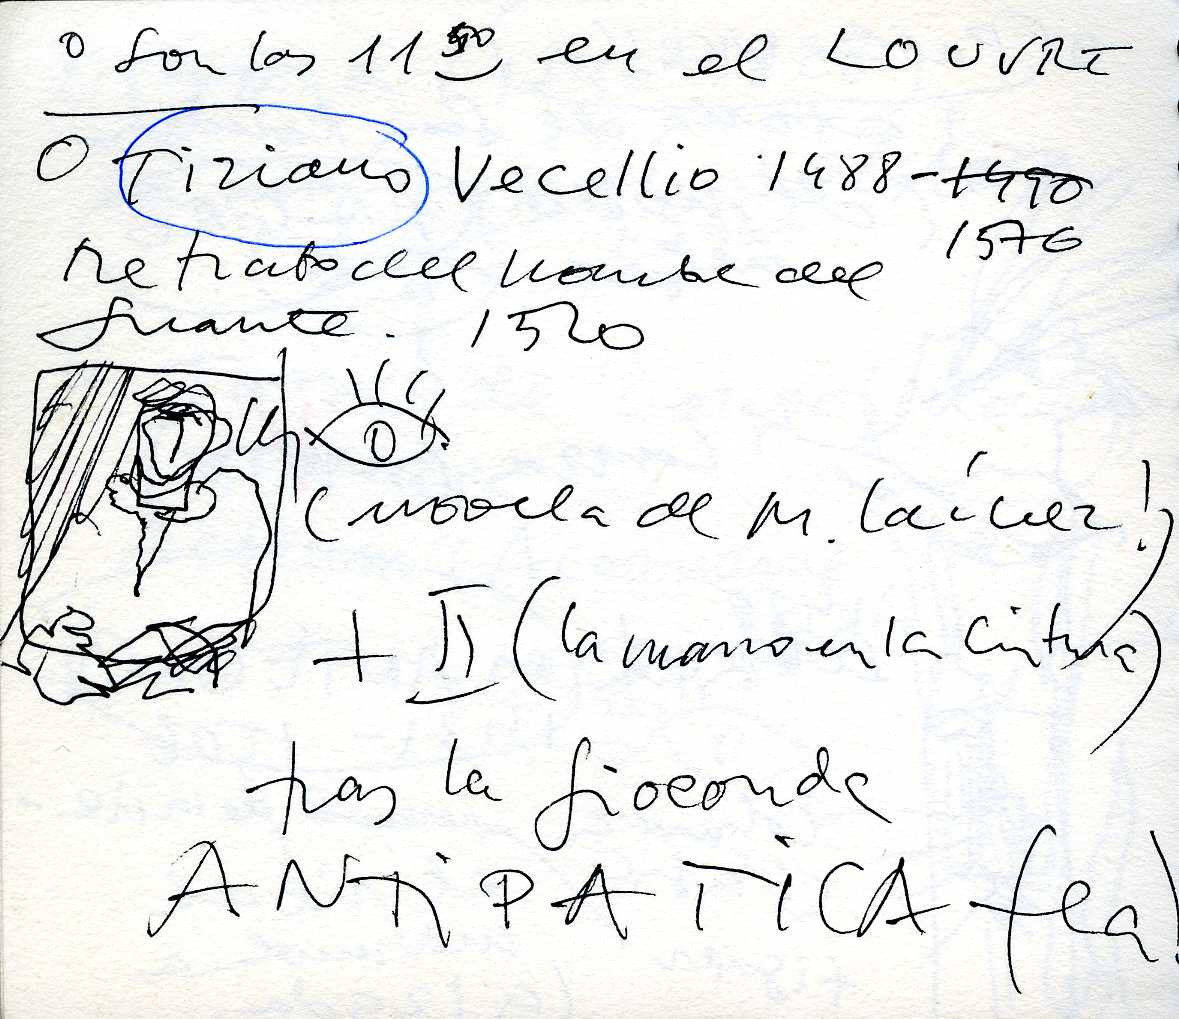 o Son las 11 50 en el LOUVRE
O Tiziano Vecellio 1488-1490
1576
Retrato del hombre del
guante. 1520
(novela de M. Láinez!)
+ II (la mano en la cintura)
tras la gioconda
ANTiPATICA fea!